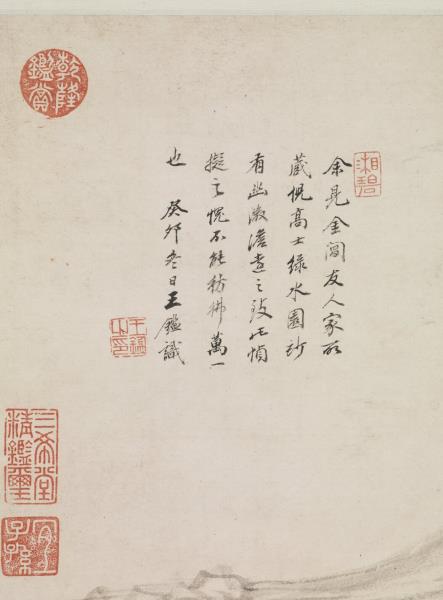 湘碧
余見金閶友人家所
藏倪高士綠水園
有幽澂澹遠之致此幀
擬之愧不能彷彿萬一
也 癸卯冬日王鑑識
王鑑之印
乾隆鑑賞
三希堂精鑑璽
宜子孫